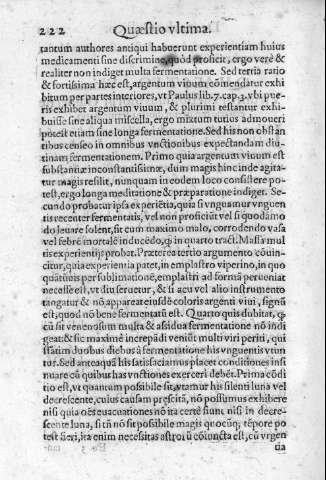 222 Quæstio vltima.
tantum authores antiqui habuerunt experientiam huius
medicamenti sine discrimine, quòd proficit, ergo verè &
realiter non indiget multa fermentatione. Sed tertia ratio
& fortissima hæc est, argentum viuum cõmendatur exhi
bitum per partes interiores, vt Paulus lib. 7. cap. 3. vbi pue-
ris exhibet argentum viuum, & plurimi testantur exhi-
buisse sine aliqua miscella, ergo mixtum tutius admoueri
poterit etiam sine longa fermentatione. Sed his non obstãn
tibus censeo in omnibus vnctionibus expectandam diu-
tinam fermentationem. Primo quia argentum viuum est
substantiæ inconstantissimæ, dum magis hinc inde agita-
tur magis resilit, nunquam in eodem loco consistere po-
test, ergo longa meditatione & præparatione indiget. Se-
cundo probatur ipsa experiẽtia, quia si vnguamur vnguen
tis recenter fermentatis, vel non prosiciũt vel si quodãmo
do leuare solent, sit cum maximo malo, corrodendo vasa
vel febrẽ mortalẽ inducẽdo, q̃ in quarto tract. Massæ mul
tis experientijs probat. Præterea tertio argumento cõuin-
citur, quia experientia patet, in emplastro viperino, in quo
quãtũuis per sublimationẽ, emplastri ad formã perueniat
necesse est, vt diu seruetur, & si acu vel alio instrumento
tangatur & nõ appareat eiusdẽ coloris argenti viui, signũ
est, quod nõ bene fermentatũ est. Quarto quis dubitat, q̃
cũ sit venenosum multa & assidua fermentatione nõ indi
geat: & sic maximè increpãdi veniũt multi viri periti, qui
issatim duobus diebus à fermentatione his vnguentis vtun
tur. Sed anteaquã his satisfaciamus placet conditiones insi
nuare cũ quibus has vnctiones exerceri debẽt. Prima cõdi
tio est, vt quantum possibile sit, vtamur his silenti luna vel
decrescente, cuius causam prescitã, nõ possumus exhibere
nisi quia oẽs euacuationes nõ ita certè fiunt nisi in decre-
scente luna, si tñ nõ sit possibile magis quocũq; tẽpore po
test fieri, ita enim necessitas astrorũ cõiuncta est, cũ vrgen
tia